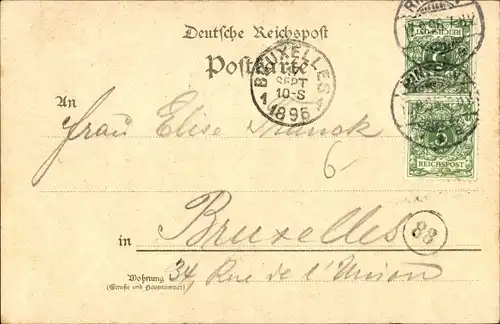 Deutsche Reichspost
Postkarte
An
Frau Elise Franck
6
in Bruxelles
88
Wohnung 34, Rue de l'Union
(Straße und Hausnummer)
BRUXELLES 1
SEPT
10-S
1895
REICHSPOST
5
REICHSPOST